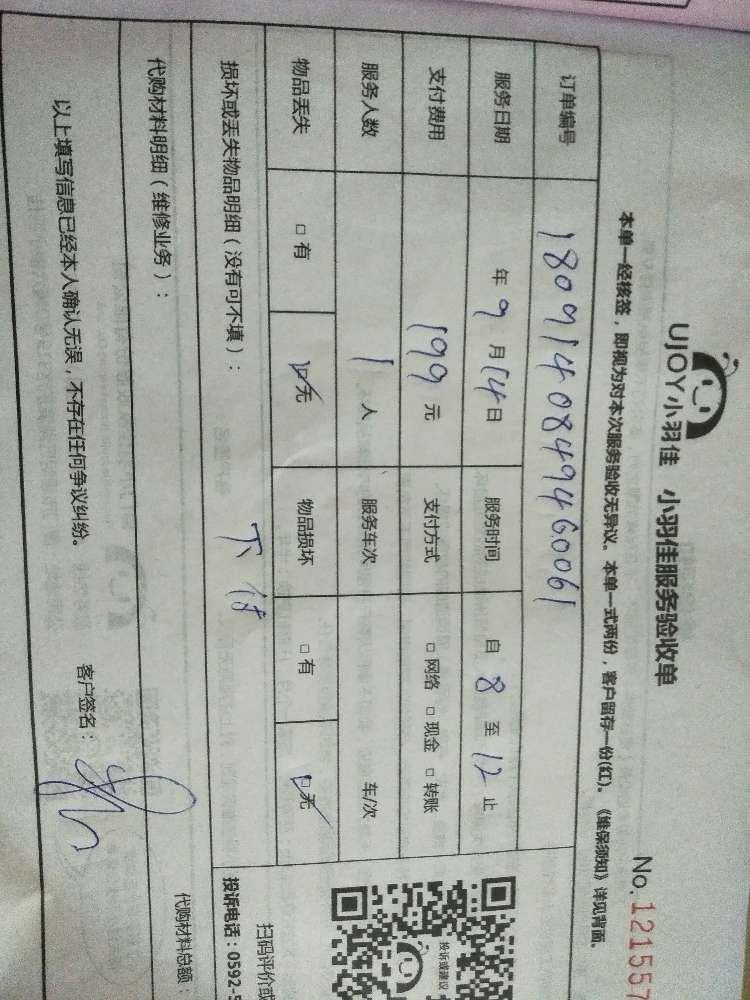 UJOY小羽佳 小羽佳服务验收单
No.121557
本单一经核签，即视为对本次服务验收无异议。本单一式两份，客户留存一份(红)。《维保须知》详见背面。
订单编号 1809140849460061
服务日期 年 9 月 14 日 服务时间 自 8 至 12 止
支付费用 199 元 支付方式 □网络 □现金 □转账
服务人数 1 人 服务车次 车/次
物品丢失 □有 ☑无 物品损坏 □有 ☑无
损坏或丢失物品明细（没有可不填）：
代购材料明细（维修业务）：
代购材料总额：
以上填写信息已经本人确认无误，不存在任何争议纠纷。
客户签名：
投诉或建议
扫码评价或
投诉电话：0592-5